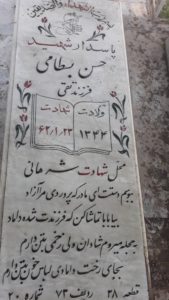 پاسدار شهید
حسن بسطامی
فرزند تقی
ولادت شهادت
۱۳۴۴ ۶۲/۱/۲۳
محل شهادت شرهانی
ببوسم دستت ای مادر که پروردی مرا آزاد
بیا بابا تماشا کن که فرزندت شده داماد
بحجله میروم شادان ولی زخمی بتن دارم
بجای رخت دامادی لباس خونین بتن دارم
قطعه ۲۸ ردیف ۷۳ شماره ۲۰